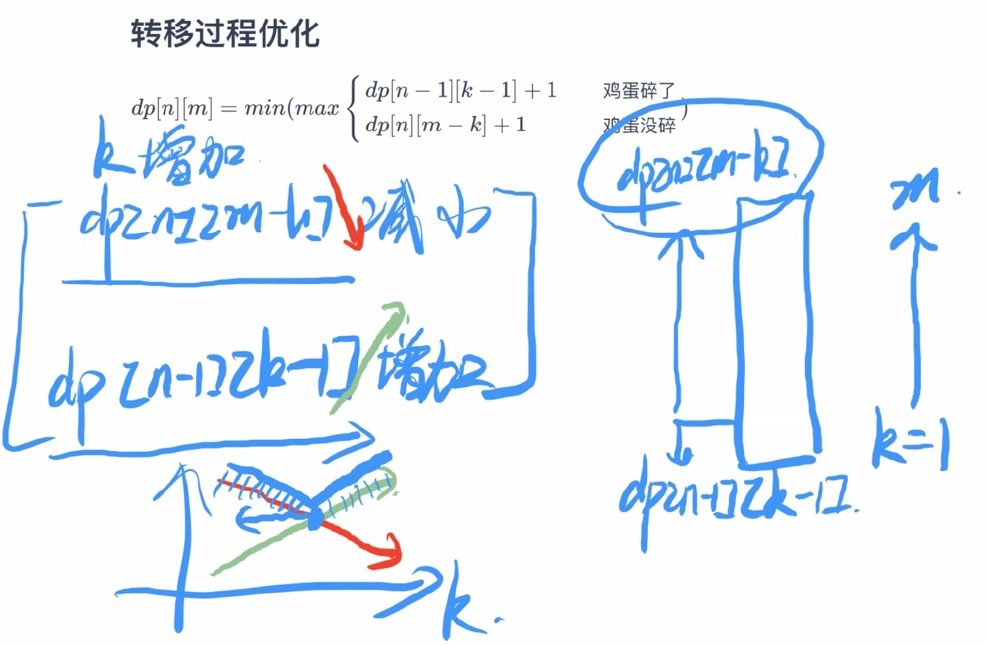 转移过程优化
dp[n][m] = min(max { dp[n − 1][k − 1] + 1 鸡蛋碎了
dp[n][m − k] + 1 鸡蛋没碎 )
k 增加
dp[n][m-k] 减小
dp[n-1][k-1] 增加
k.
dp[n][m-k].
m.
k=1
dp[n-1][k-1].